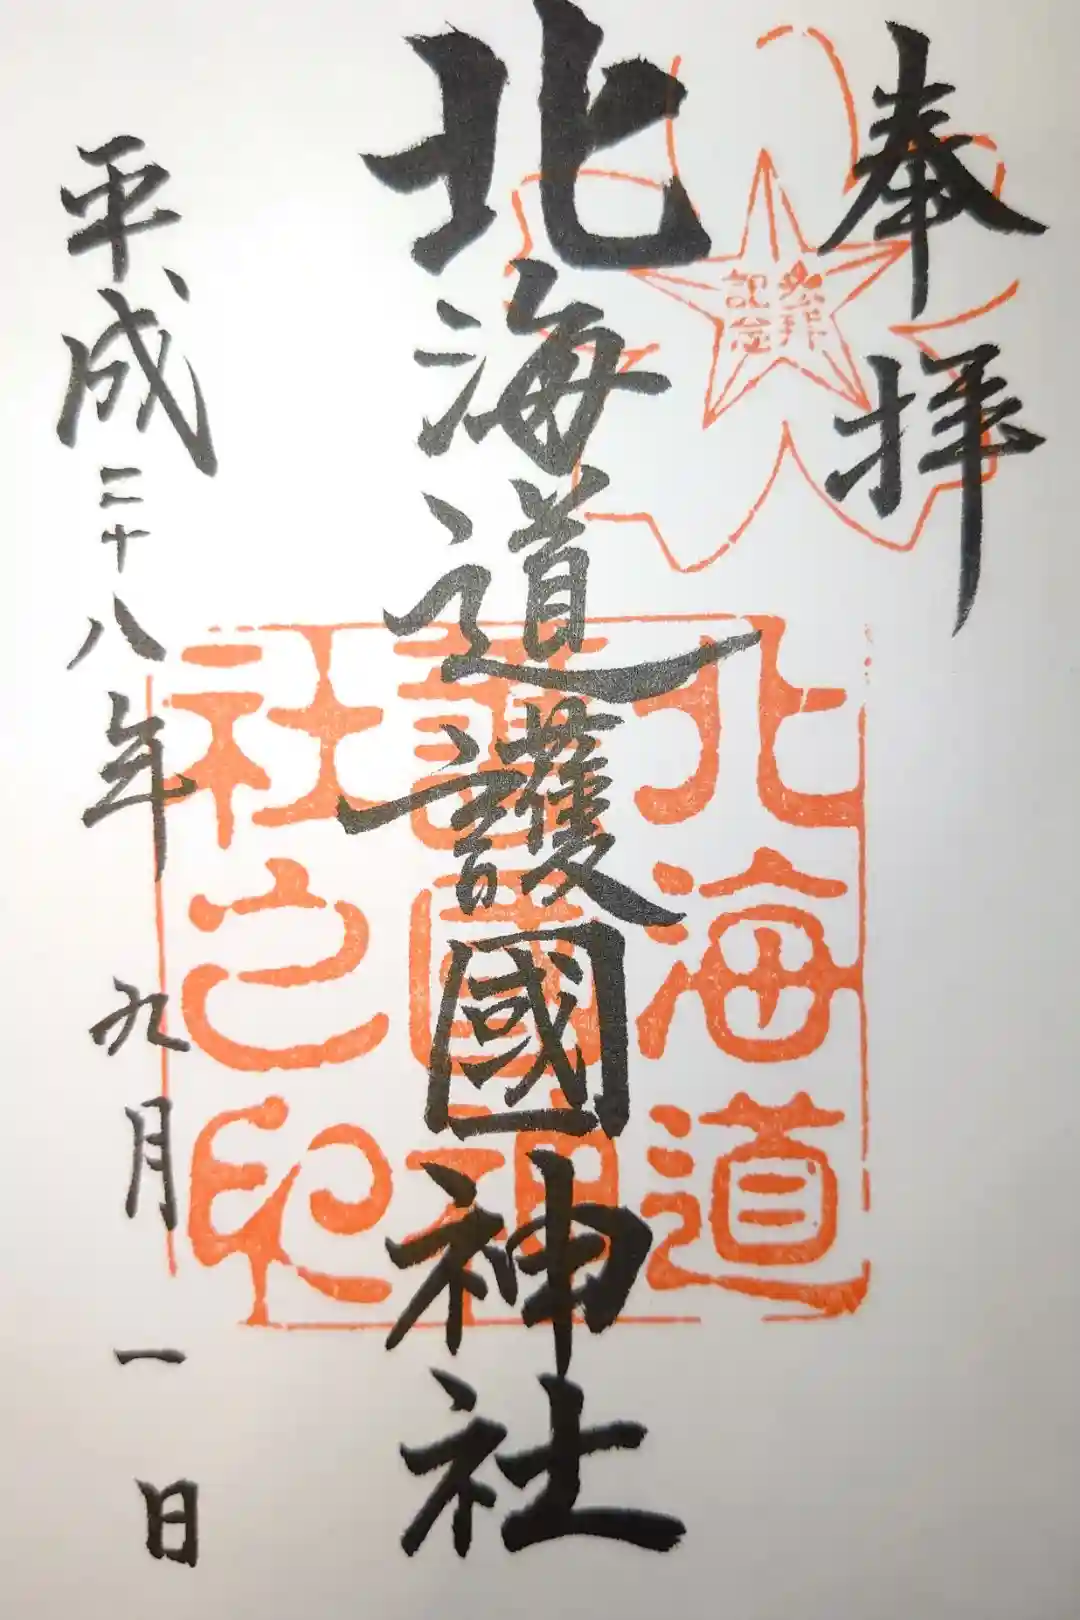 奉拝
参拝
記念
北海道護國神社
北海道
護國神
社之印
平成二十八年九月一日